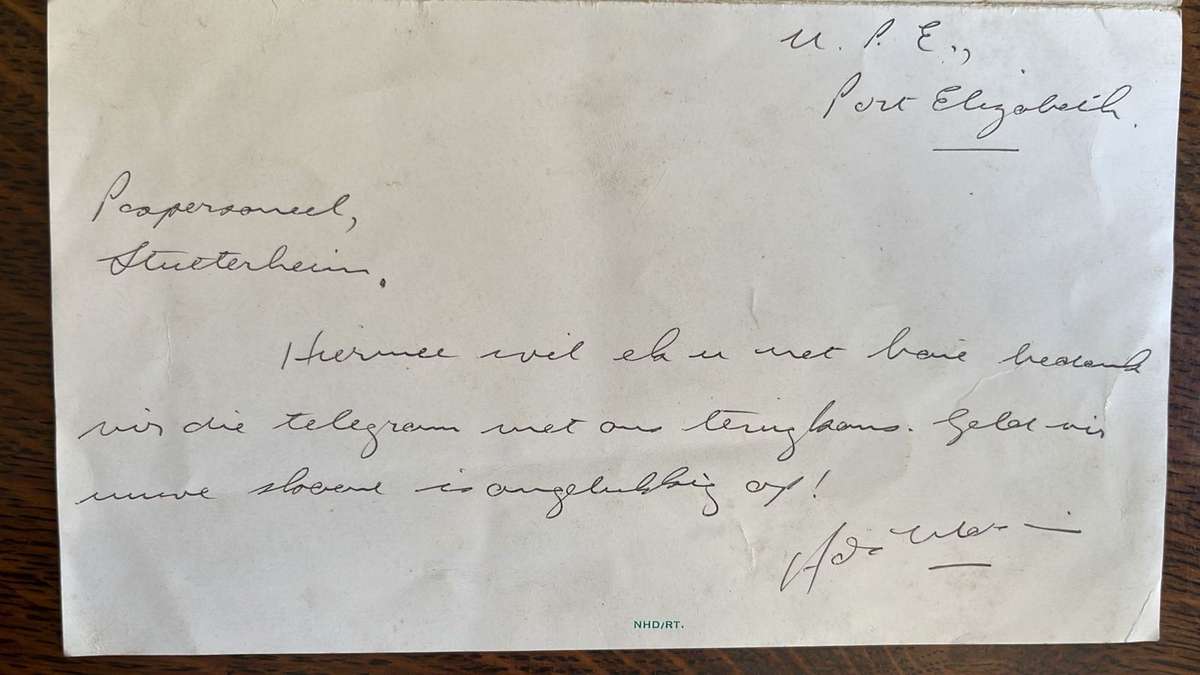 U. P. E.,
Port Elizabeth.
Pospersoneel,
Stutterheim.
Hiermee wil ek u net baie bedank
vir die telegram met ons terugkoms. Geld vir
nuwe skoene is ongelukkig op!
NHD/RT.